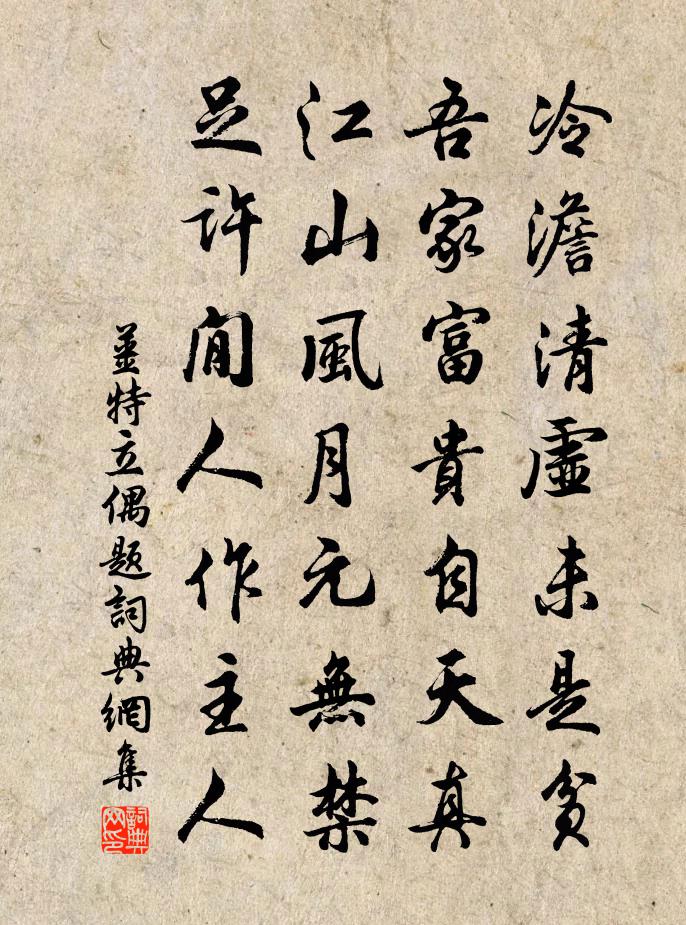 冷澹清虛未是貧
吾家富貴自天真
江山風月元無禁
足許閒人作主人
薑特立偶題詞典網集
詞典网印